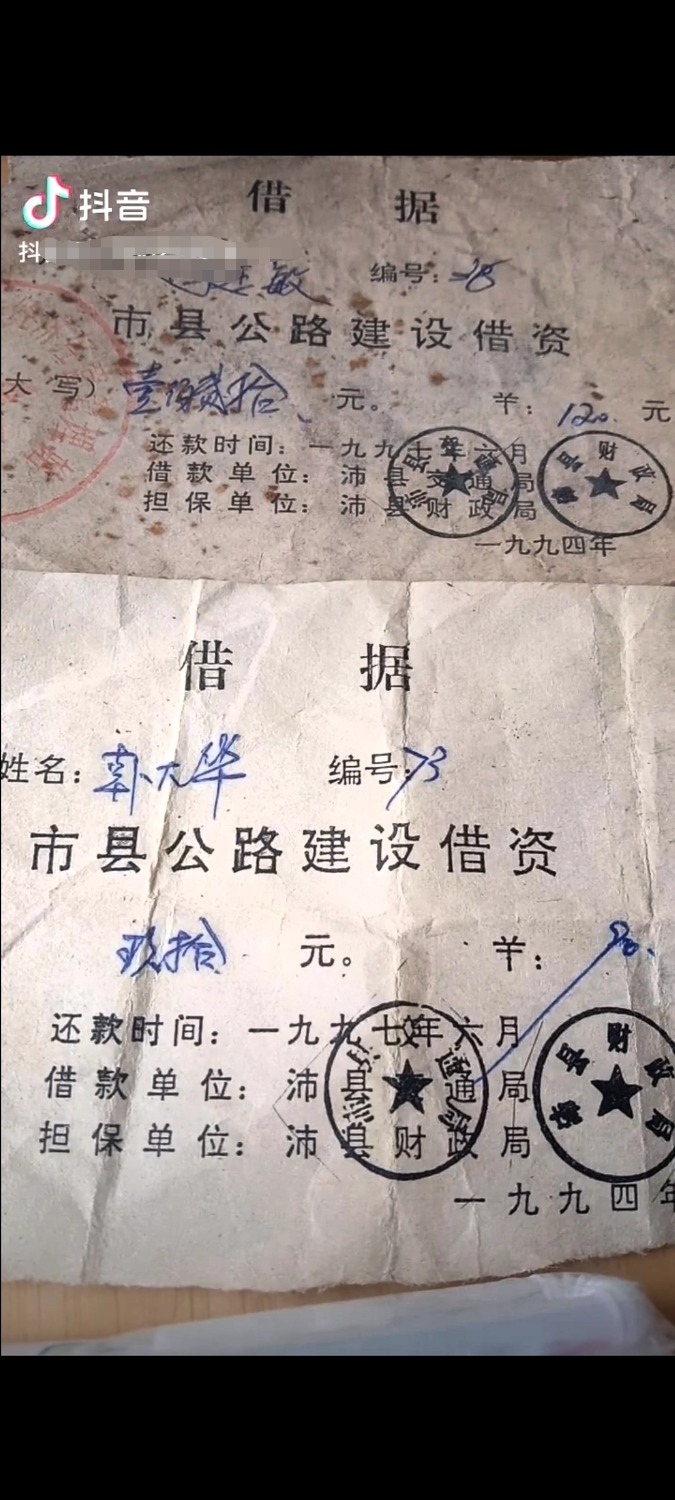 抖音
抖
借 据
敏 编号:
市县公路建设借资
大写) 壹佰贰拾 元。 羊: 120. 元
还款时间: 一九九七年六月
借款单位: 沛县交通局
担保单位: 沛县财政局
沛县交通局
沛县财政局
一九九四年
借 据
姓名: 大华 编号: 73
市县公路建设借资
玖拾 元。 羊: 90.
还款时间: 一九九七年六月
借款单位: 沛县交通局
担保单位: 沛县财政局
沛县交通局
沛县财政局
一九九四年